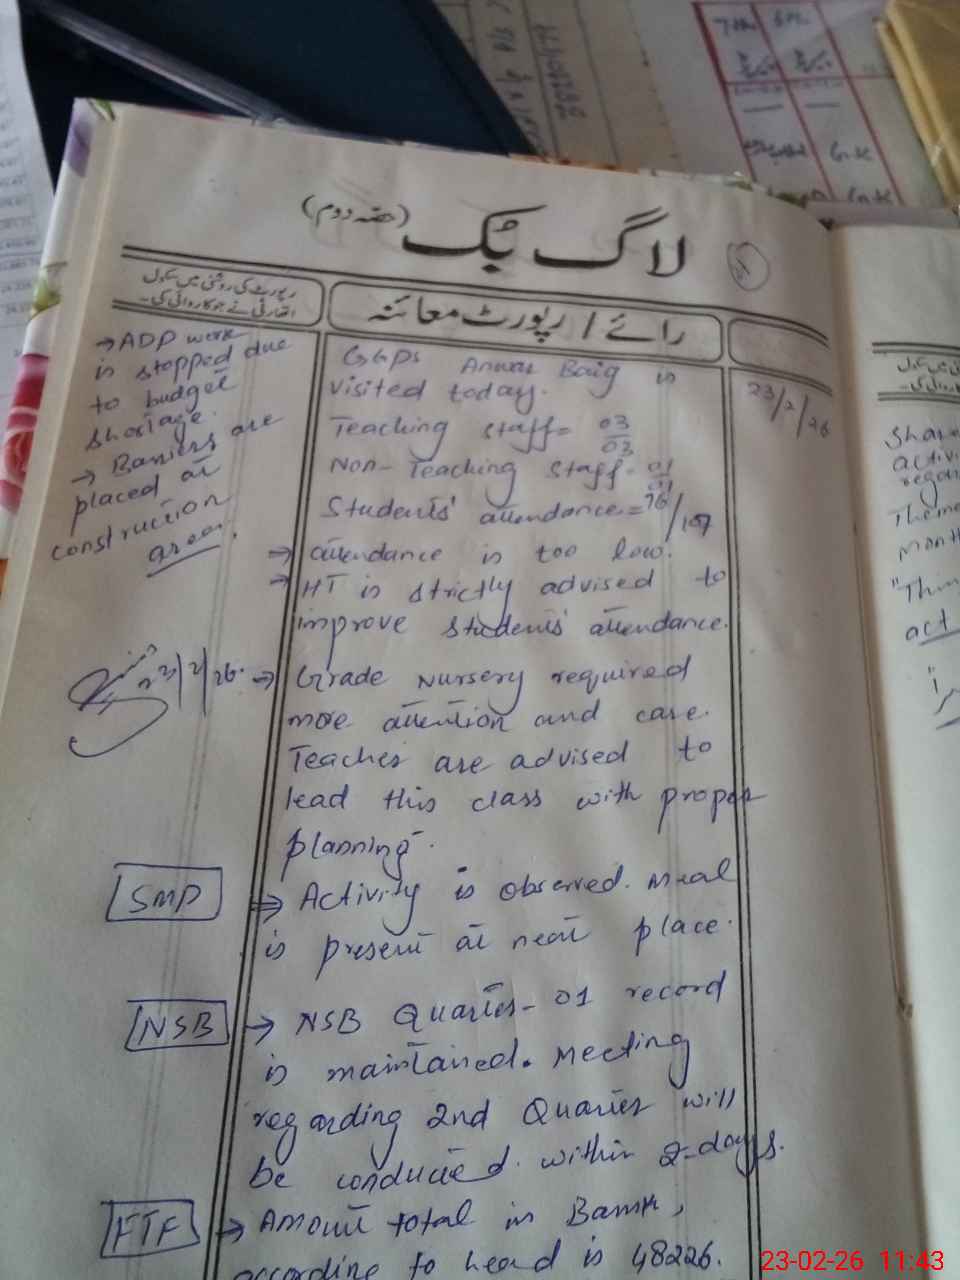 لاگ بک (حصہ دوم)
رپورٹ کی روشنی میں سکول
اتھارٹی نے جو کاروائی کی۔
رائے / رپورٹ معائنہ
23/2/26
→ ADP work
is stopped due
to budget
shortage.
→ Barriers are
placed at
construction
area.
23/2/26
GGPS Anwar Baig is
visited today.
Teaching staff = 03/03
Non-Teaching staff = 01/01
Students' attendance = 76/107
→ attendance is too low.
→ HT is strictly advised to
improve students' attendance.
→ Grade Nursery required
more attention and care.
Teacher are advised to
lead this class with proper
planning.
SMP ⇒ Activity is observed. Meal
is present at neat place.
NSB → NSB Quarter-01 record
is maintained. Meeting
regarding 2nd Quarter will
be conducted within 2-days.
FTF → Amount total in Bank,
according to head is 48226.
act
23-02-26 11:43